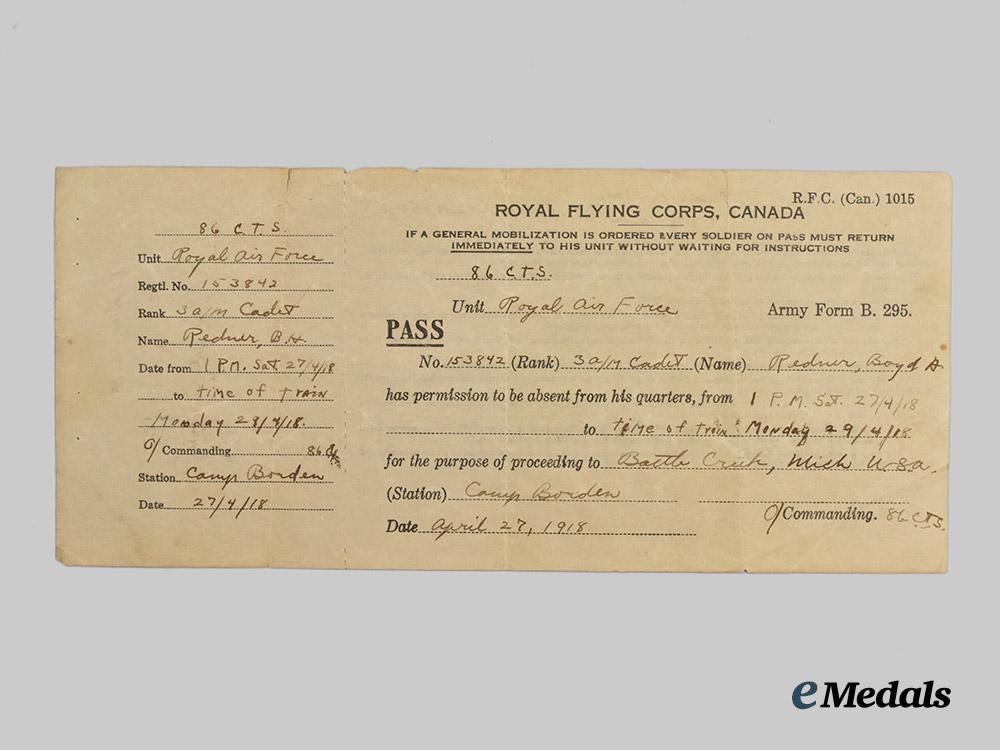 86 C.T.S.
Unit Royal Air Force
Regtl. No. 153842
Rank 3 a/m Cadet
Name Redner, B.H.
Date from 1 P.M. Sat. 27/4/18
to time of train
Monday 29/4/18.
O/ Commanding 86
Station Camp Borden
Date 27/4/18
R.F.C. (Can.) 1015
ROYAL FLYING CORPS, CANADA
IF A GENERAL MOBILIZATION IS ORDERED EVERY SOLDIER ON PASS MUST RETURN
IMMEDIATELY TO HIS UNIT WITHOUT WAITING FOR INSTRUCTIONS
86 C.T.S.
Unit Royal Air Force Army Form B. 295.
PASS
No. 153842 (Rank) 3 a/m Cadet (Name) Redner, Boyd H
has permission to be absent from his quarters, from 1 P.M. Sat. 27/4/18
to time of train Monday 29/4/18
for the purpose of proceeding to Battle Creek, Mich U.S.A.
(Station) Camp Borden
O/ Commanding. 86 C.T.S.
Date April 27, 1918
eMedals